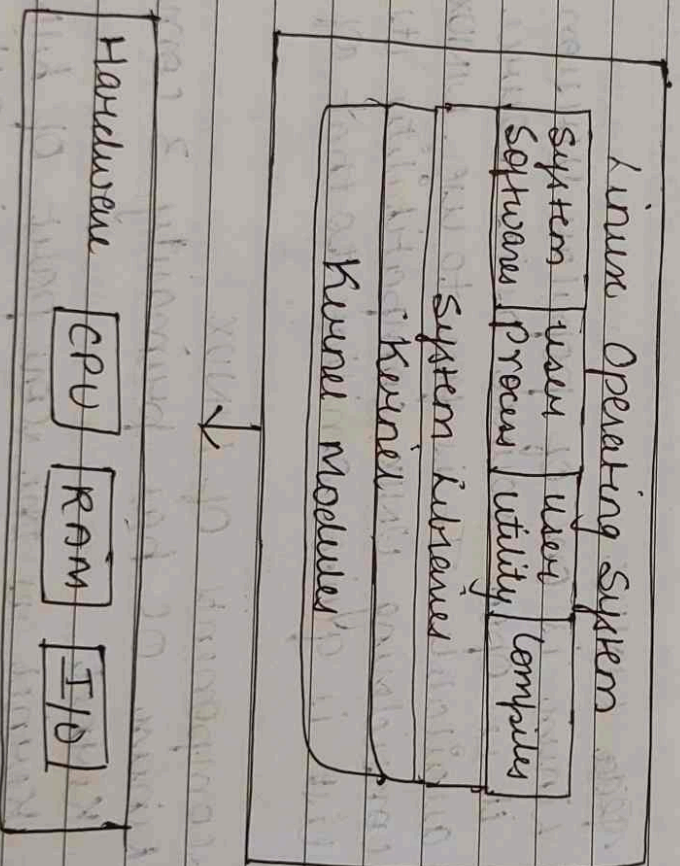 Linux Operating System
System Softwares
User Process
User Utility
Compiles
System Libraries
Kernel
Kernel Modules
Hardware CPU RAM I/O